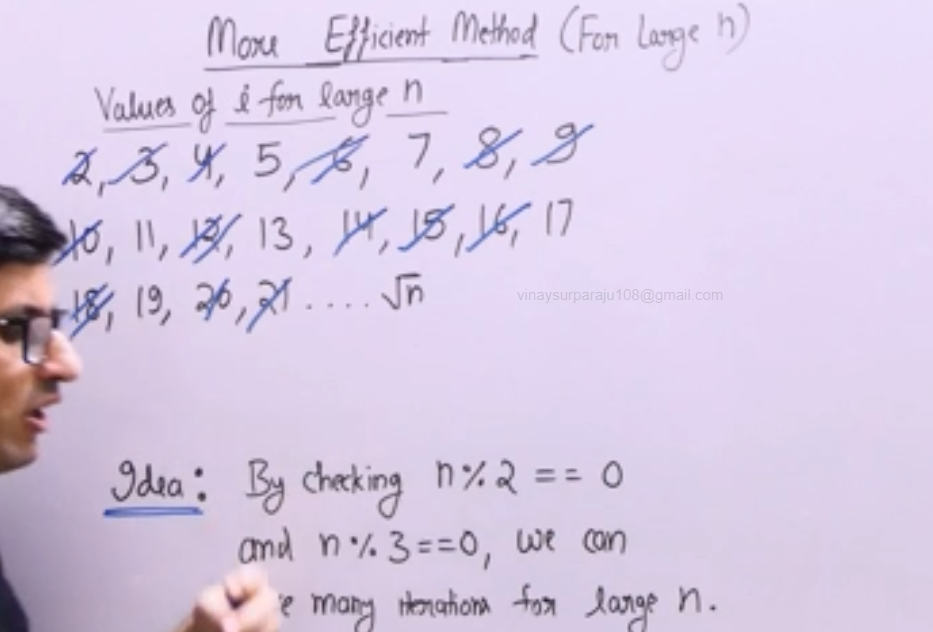 More Efficient Method (For Large n)
Values of i for large n
2, 3, 4, 5, 6, 7, 8, 9
10, 11, 12, 13, 14, 15, 16, 17
18, 19, 20, 21 .... √n
vinaysurparaju108@gmail.com
Idea: By checking n%2 == 0
and n%3==0, we can
many iterations for large n.